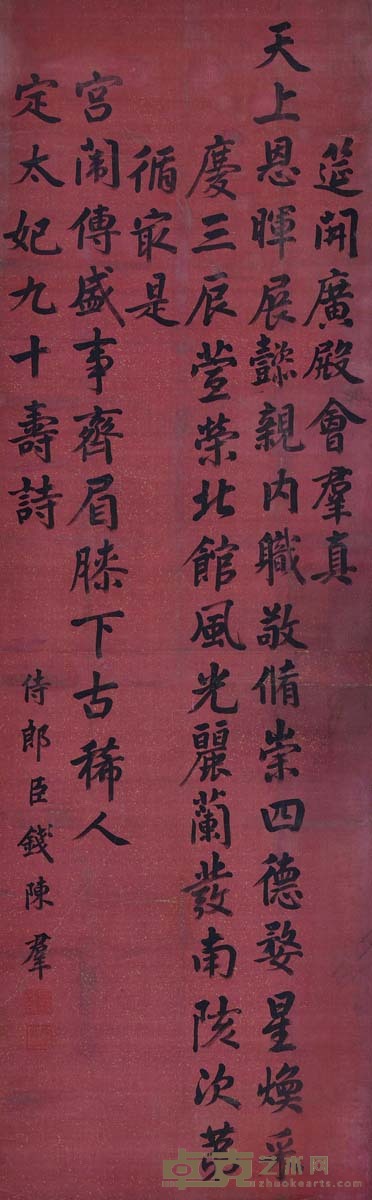 筵開廣殿會羣真
天上恩暉展懿親內職敬脩崇四德婺星煥采
慶三辰萱榮北館風光麗蘭發南陔次第
循最是
宮闈傳盛事齊眉膝下古稀人
定太妃九十壽詩
侍郎臣錢陳羣
卓克艺术网
zhuokearts.com